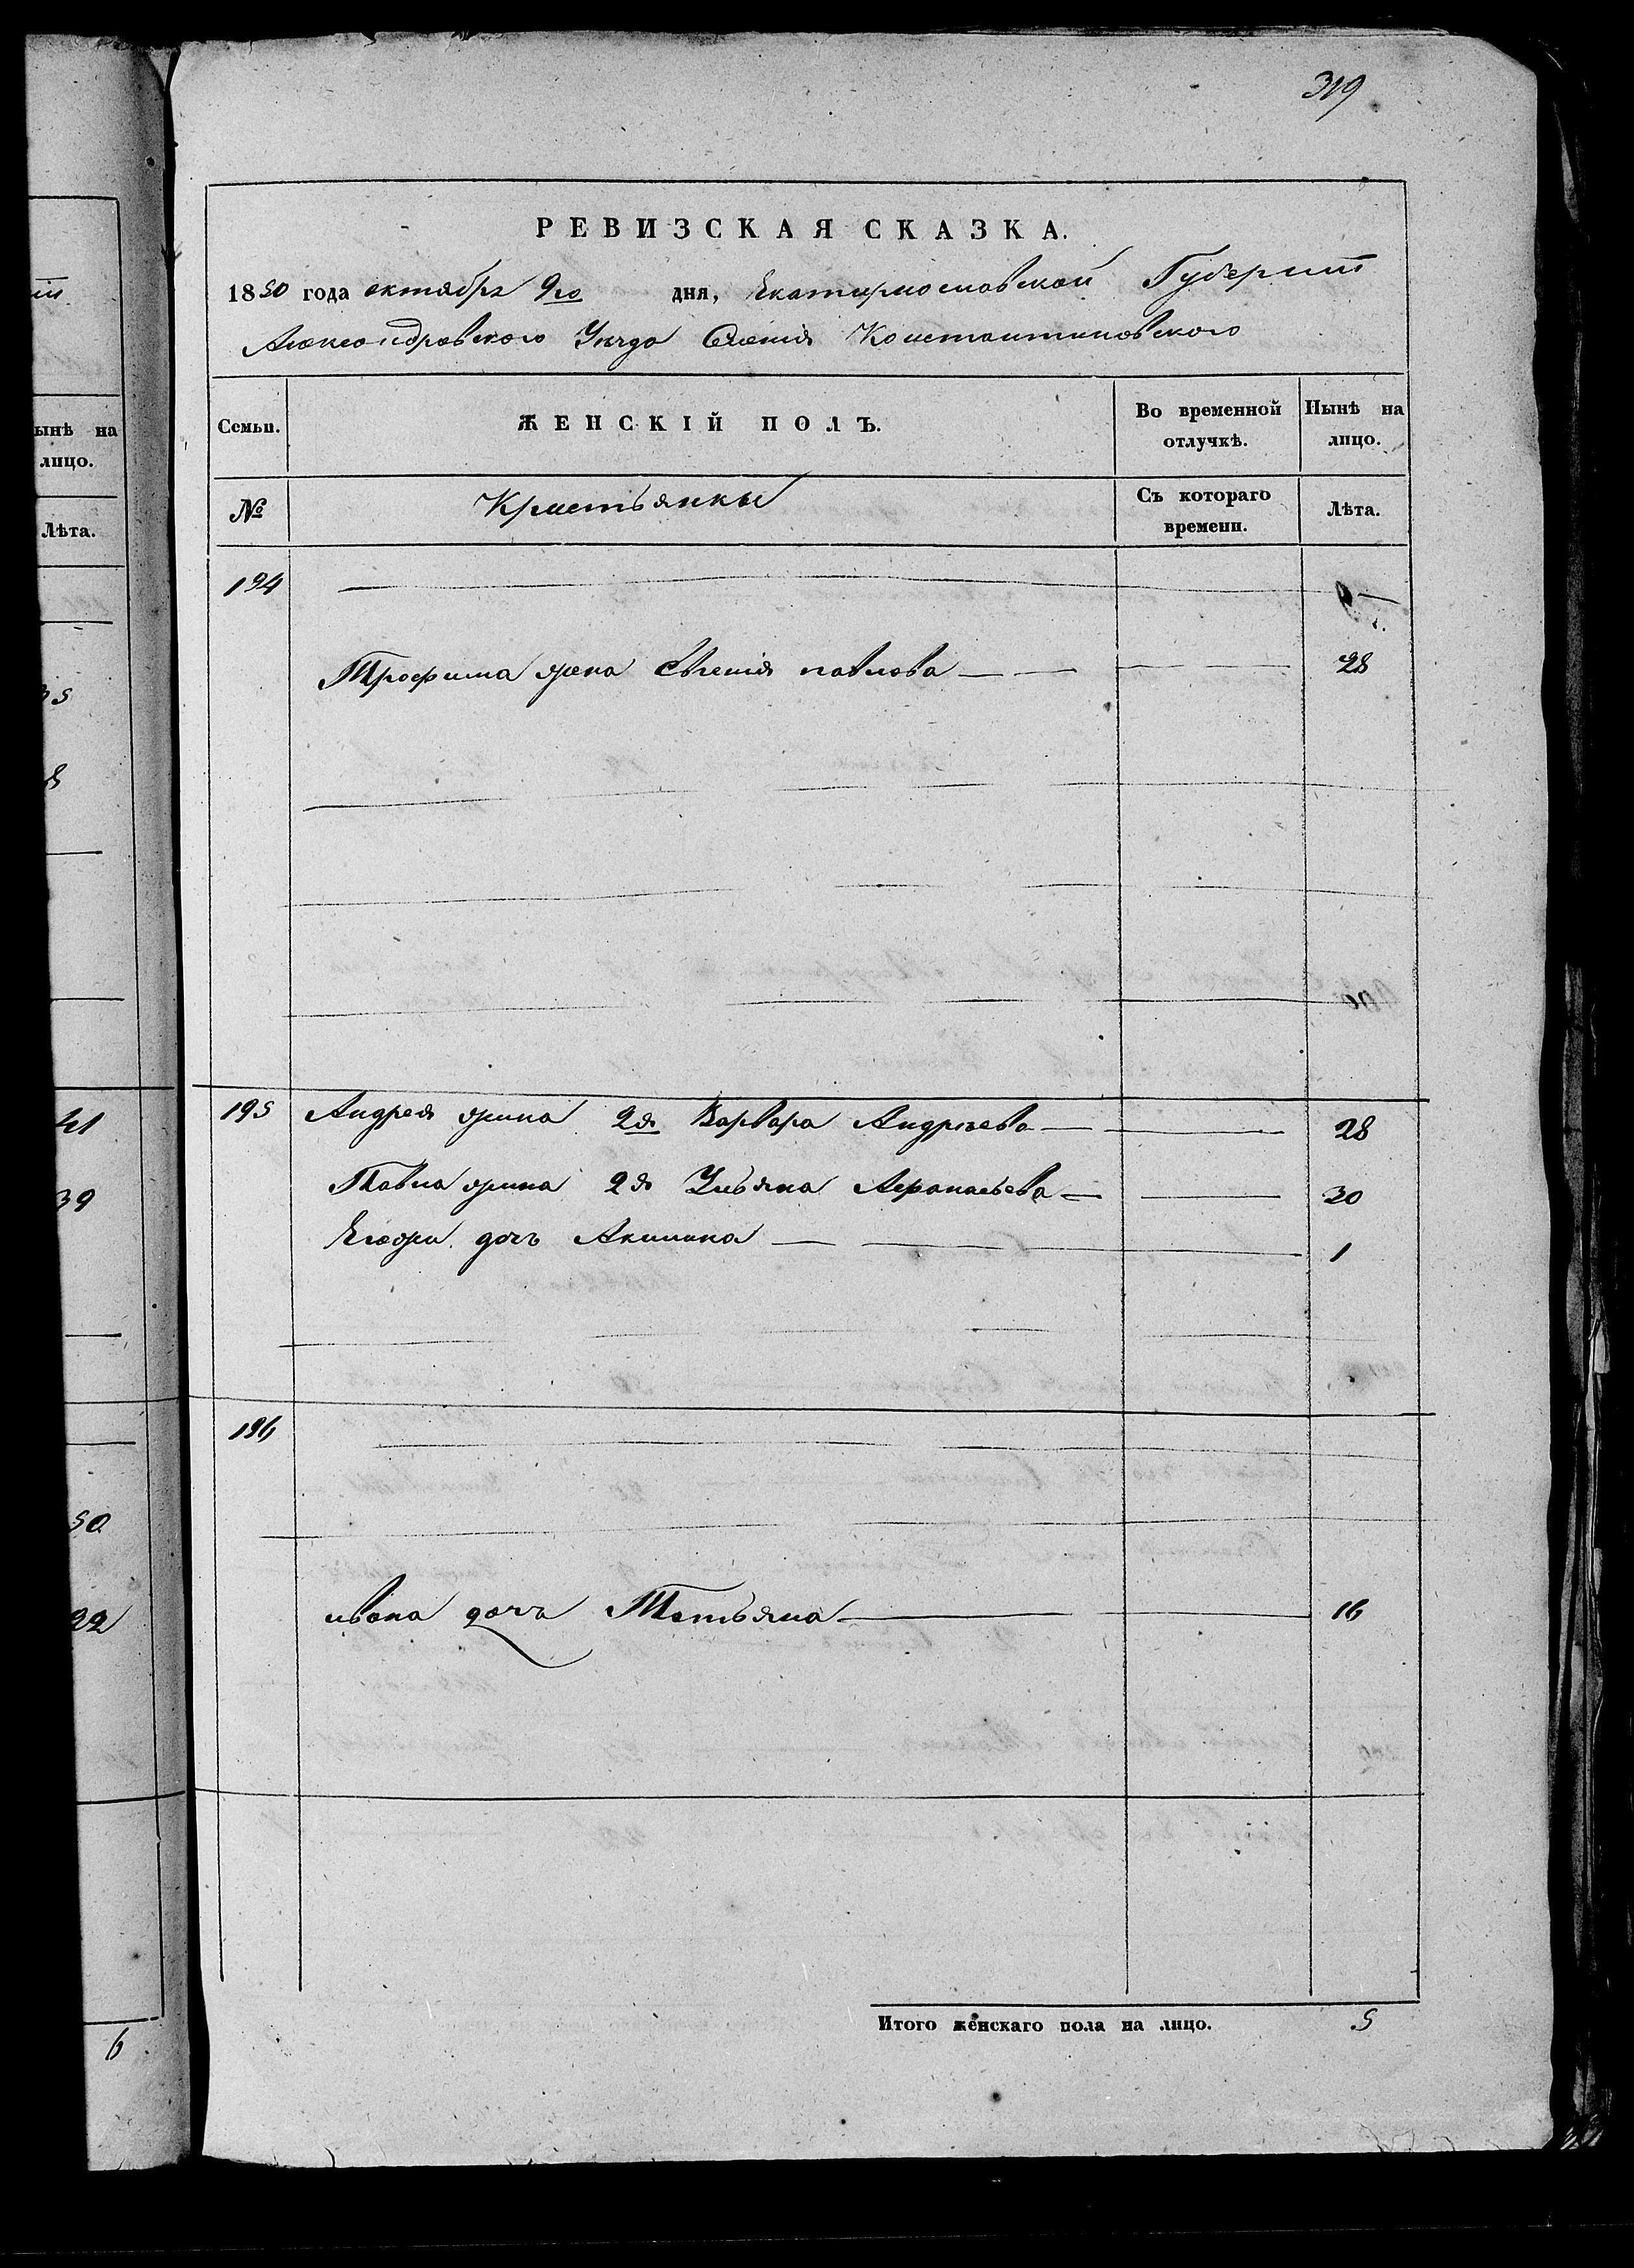 319
РЕВИЗСКАЯ СКАЗКА.
1850 года октября 9го дня, Екатеринославской Губернии
Александровского Уезда Селения Константиновского
Семьи. ЖЕНСКІЙ ПОЛЪ. Во временной отлучкѣ. Нынѣ на лицо.
№ Крестьянки Съ котораго времени. Лѣта.
194
Трофима жена Евгения павлова 28
195 Андрея жина 2я Варвара Андреева 28
Павла жина 2я Ульяна Афанасьева 30
дочь Акилина 1
196
ивана дочь Татьяна 16
Итого женскаго пола на лицо. 5
ынѣ на
лицо.
Лѣта.
41
39
50
22
6